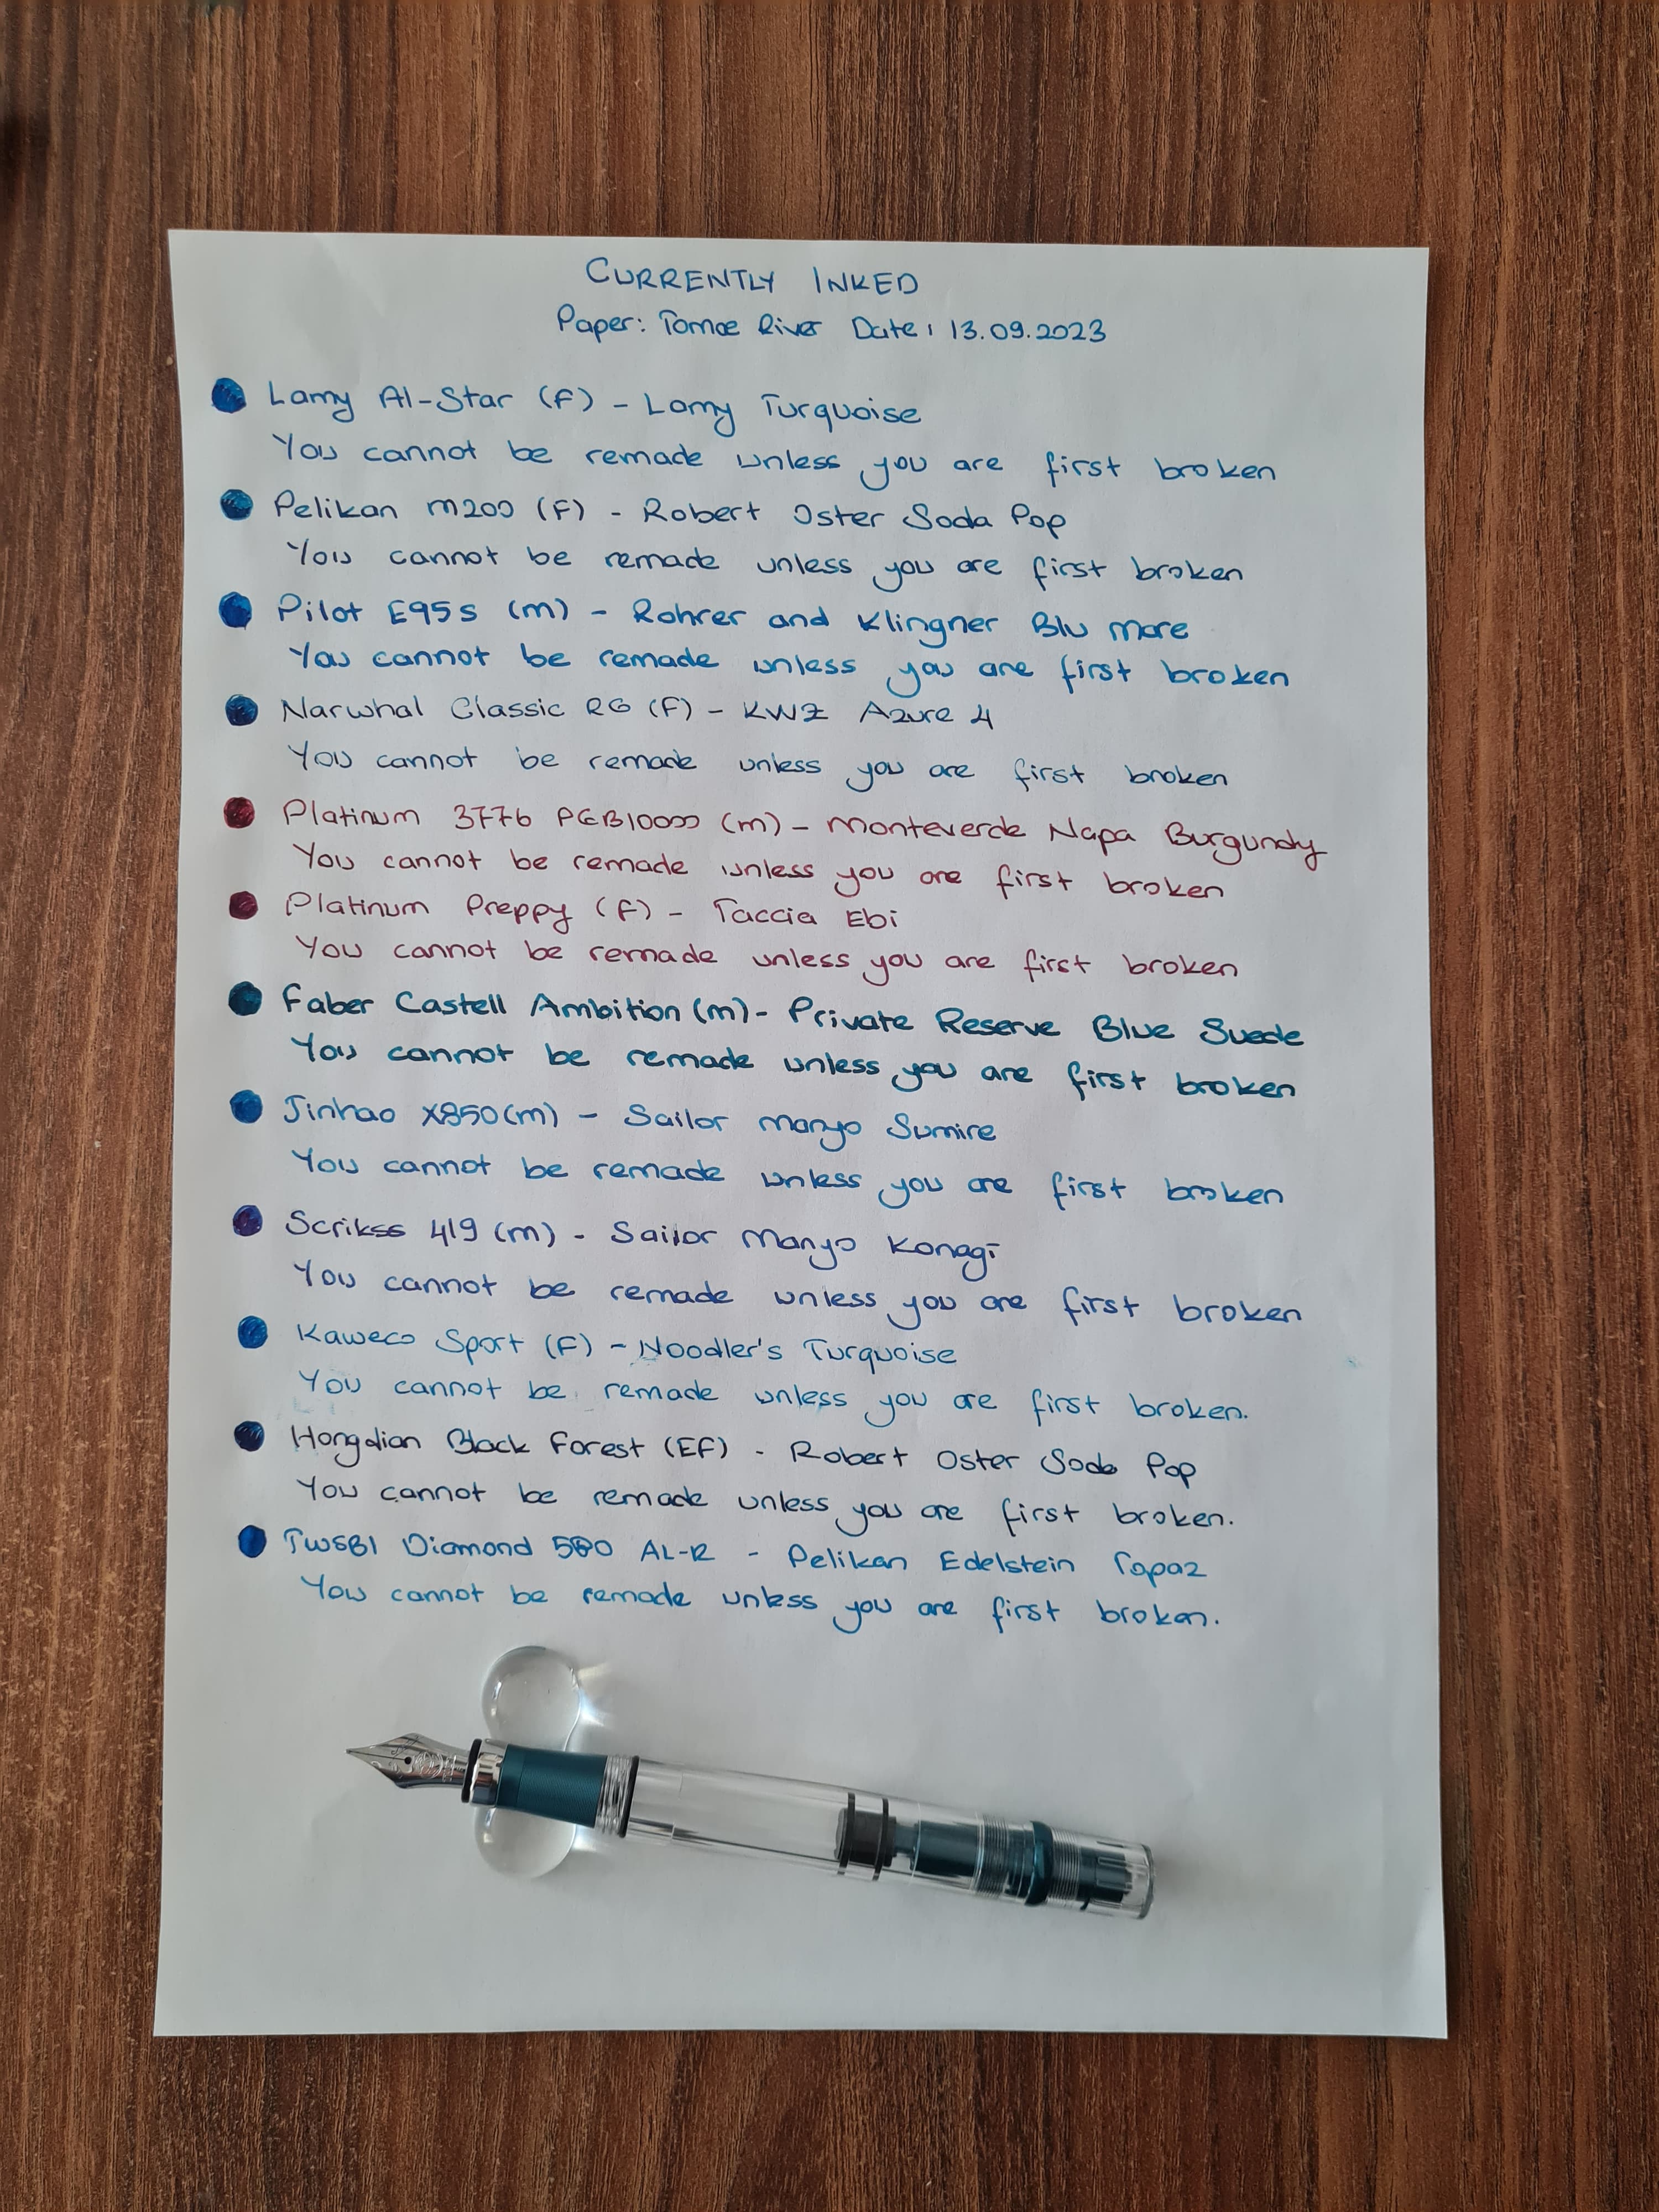 CURRENTLY INKED
Paper: Tomoe River Date: 13.09.2023
Lamy Al-Star (F) - Lamy Turquoise
You cannot be remade unless you are first broken
Pelikan M200 (F) - Robert Oster Soda Pop
You cannot be remade unless you are first broken
Pilot E95s (M) - Rohrer and Klingner Blu Mare
You cannot be remade unless you are first broken
Narwhal Classic RG (F) - KWZ Azure 4
You cannot be remade unless you are first broken
Platinum 3776 PGB10000 (M) - Monteverde Napa Burgundy
You cannot be remade unless you are first broken
Platinum Preppy (F) - Taccia Ebi
You cannot be remade unless you are first broken
Faber Castell Ambition (M) - Private Reserve Blue Suede
You cannot be remade unless you are first broken
Jinhao X850 (M) - Sailor Manyo Sumire
You cannot be remade unless you are first broken
Scrikss 419 (M) - Sailor Manyo Konagi
You cannot be remade unless you are first broken
Kaweco Sport (F) - Noodler's Turquoise
You cannot be remade unless you are first broken.
Hongdian Black Forest (EF) - Robert Oster Soda Pop
You cannot be remade unless you are first broken.
TWSBI Diamond 580 AL-R - Pelikan Edelstein Topaz
You cannot be remade unless you are first broken.